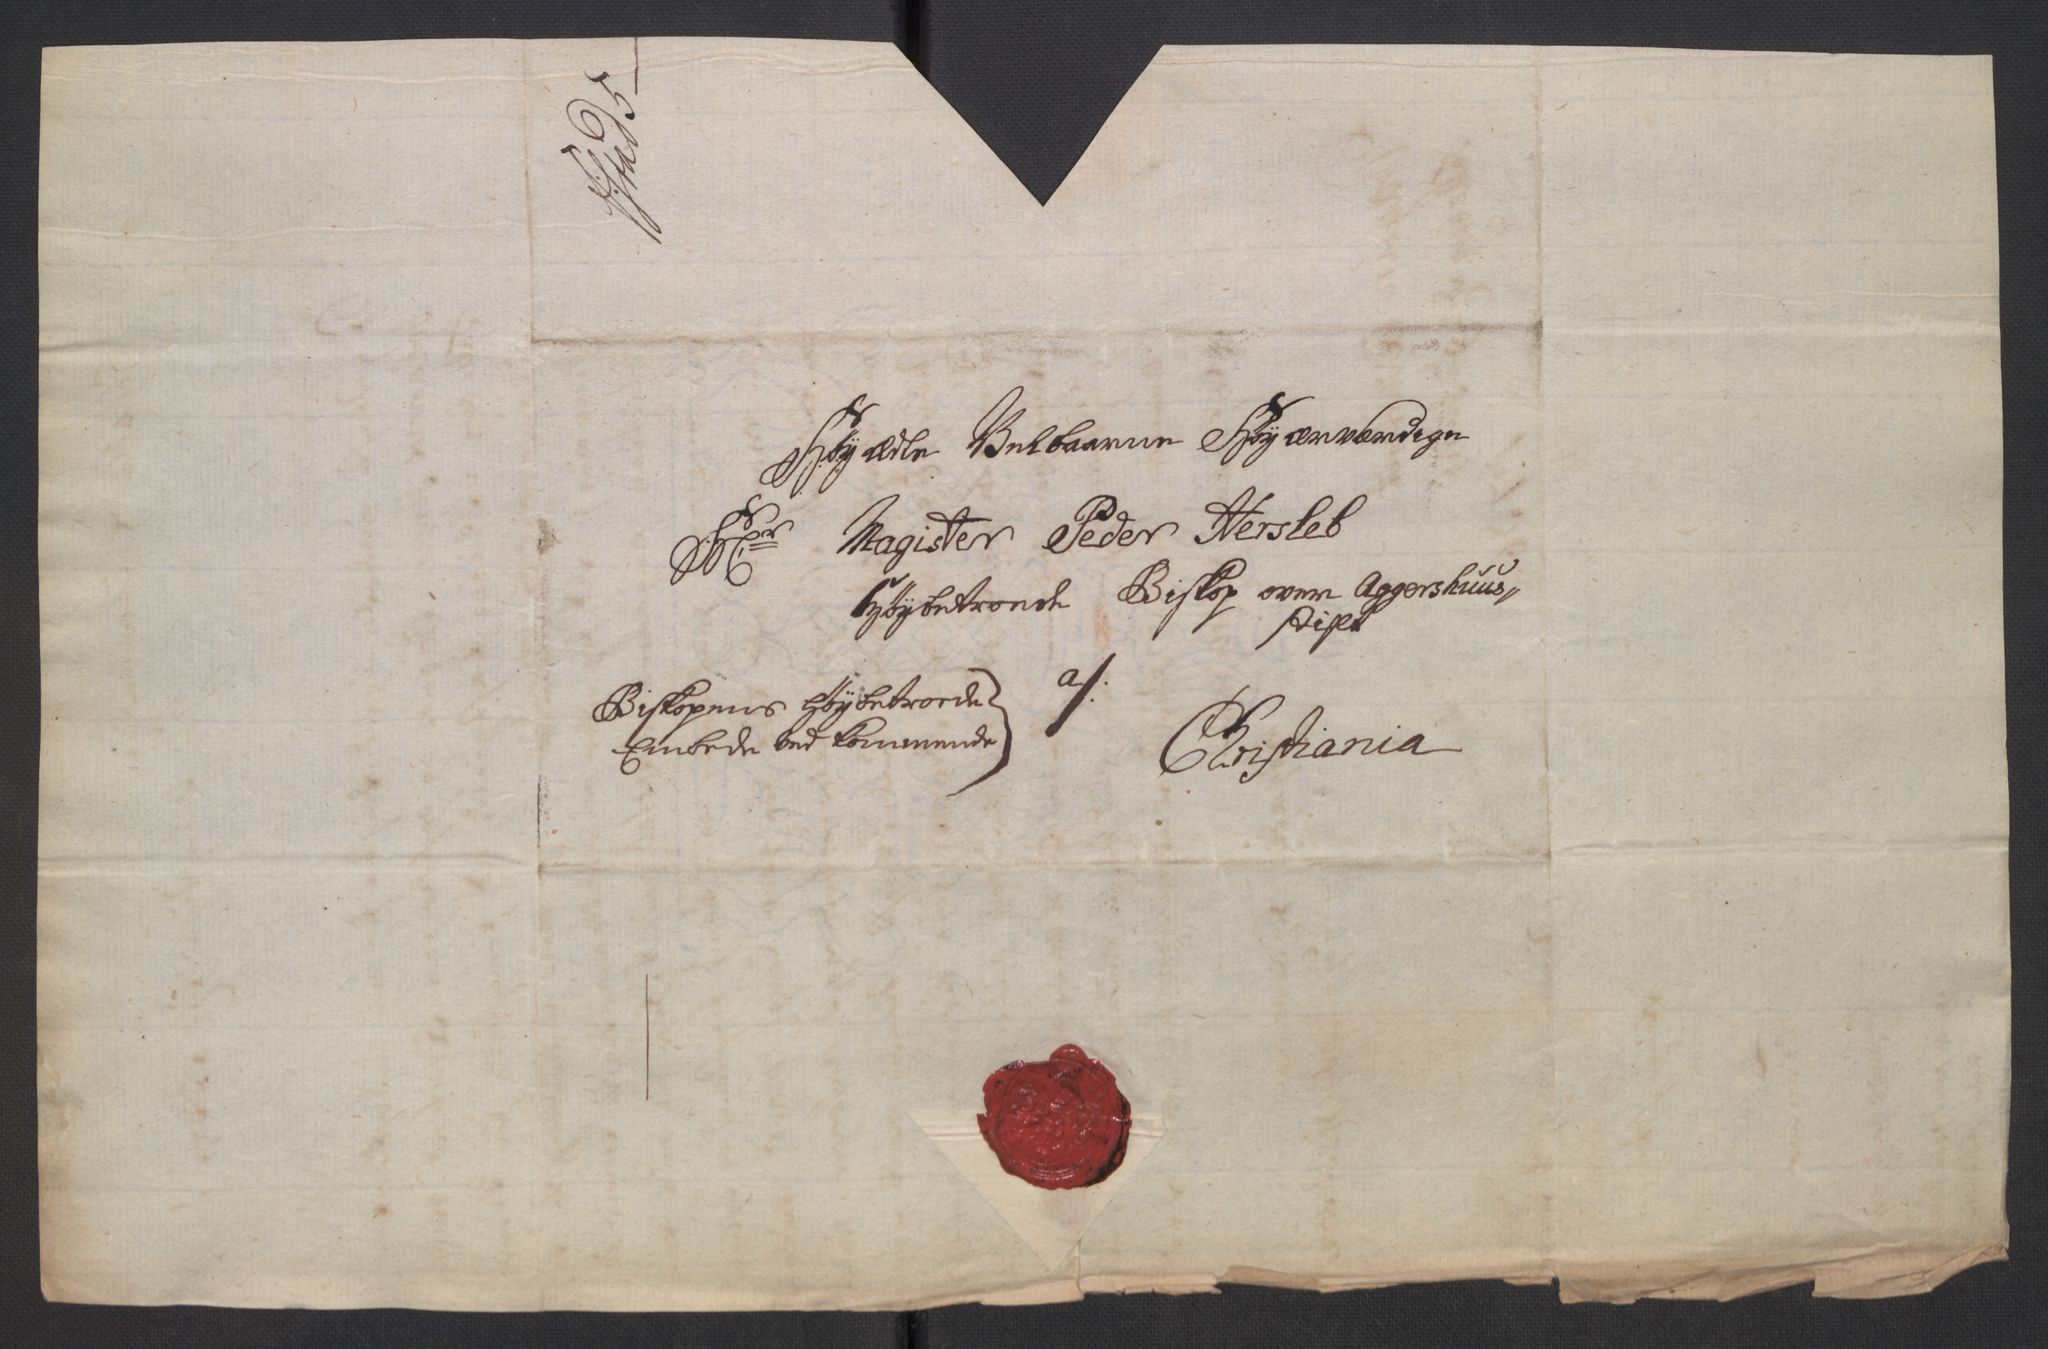 Høyædle Velbaarne Høyærværdige
Hr Magister Peder Hersleb
Høybetroede Biskop over Aggershuus
stift
a/:
Christiania
Biskopens Høybetroede
Embede ved kommende